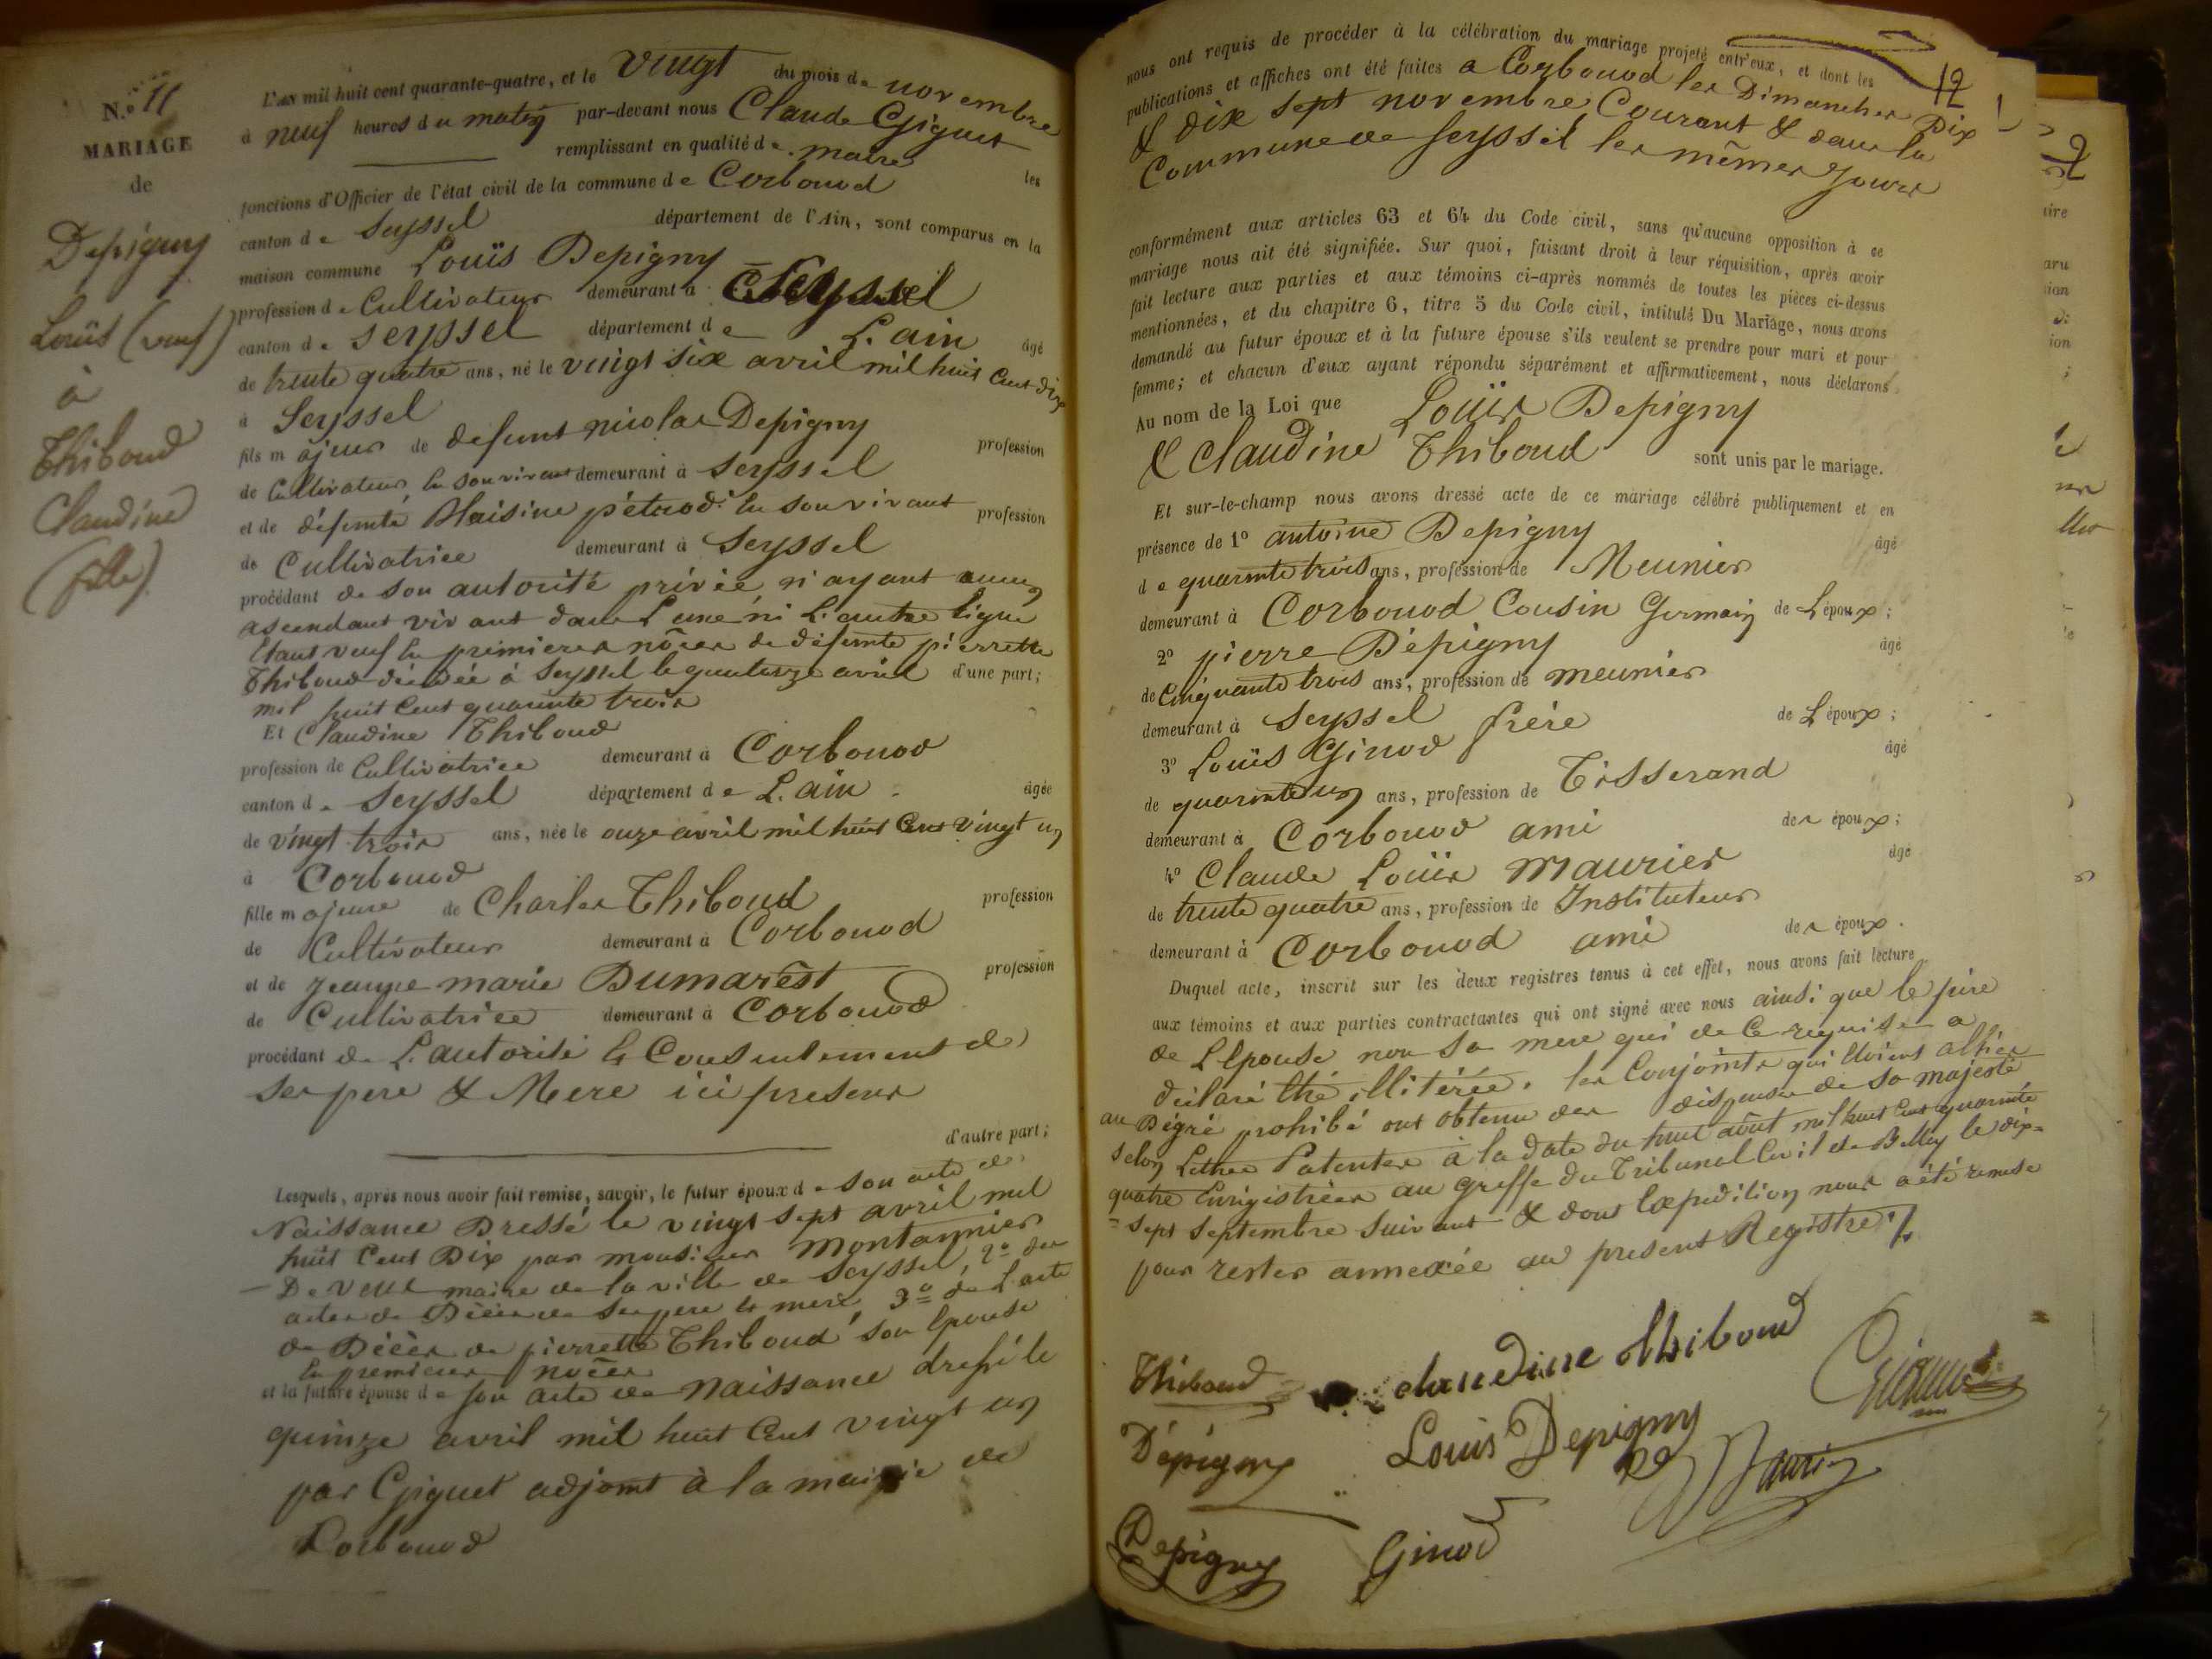 N.° 11
MARIAGE
de
Depigny
Louis (veuf)
à
Thiboud
Claudine
(fille)
L'an mil huit cent quarante-quatre, et le vingt du mois de novembre
à neuf heures du matin par-devant nous Claude Giguet
remplissant en qualité de maire les
fonctions d'Officier de l'état civil de la commune de Corbonod
canton de Seyssel département de l'Ain, sont comparus en la
maison commune Louïs Depigny
profession de Cultivateur demeurant à Seyssel
canton de Seyssel département de L'ain âgé
de trente quatre ans, né le vingt six avril mil huit Cent dix
à Seyssel
fils majeur de defunt nicolas Depigny profession
de Cultivateur en son vivant demeurant à Seyssel
et de défunte Blaisine en son vivant profession
de Cultivatrice demeurant à Seyssel
procédant de son autorité privée, n'ayant aucun
ascendant vivant dans L'une ni L'autre ligne
Etant veuf en premieres nôces de défunte pierrette
Thiboud décédée à Seyssel le quatorze avril d'une part;
mil huit Cent quarante trois
Et Claudine Thiboud
profession de Cultivatrice demeurant à Corbonod
canton de Seyssel département de L'ain âgée
de vingt trois ans, née le onze avril mil huit Cent vingt un
à Corbonod
fille majeure de Charles Thiboud profession
de Cultivateur demeurant à Corbonod
et de Jeanne marie Dumarest profession
de Cultivatrice demeurant à Corbonod
procédant de L'autorité & Consentement de
ses pere & Mere ici presens
d'autre part;
Lesquels, après nous avoir fait remise, savoir, le futur époux de son acte de
Naissance Dressé le vingt sept avril mil
huit Cent Dix par monsieur Montannier
maire de la ville de Seyssel, 2° des
actes de Décès de ses pere & mere, 3° de L'acte
de Décès de pierrette Thiboud son Epouse
en premieres nôces
et la future épouse de son acte de Naissance dressé le
quinze avril mil huit Cent vingt un
par Giguet adjoint à la mairie de
Corbonod
12
nous ont requis de procéder à la célébration du mariage projeté entr'eux, et dont les
publications et affiches ont été faites a Corbonod les Dimanches Dix
& dix sept novembre Courant & dans la
Commune de Seyssel les mêmes Jours
conformément aux articles 63 et 64 du Code civil, sans qu'aucune opposition à ce
mariage nous ait été signifiée. Sur quoi, faisant droit à leur réquisition, après avoir
fait lecture aux parties et aux témoins ci-après nommés de toutes les pièces ci-dessus
mentionnées, et du chapitre 6, titre 5 du Code civil, intitulé Du Mariage, nous avons
demandé au futur époux et à la future épouse s'ils veulent se prendre pour mari et pour
femme; et chacun d'eux ayant répondu séparément et affirmativement, nous déclarons
Au nom de la Loi que Louïs Depigny
& Claudine Thiboud sont unis par le mariage.
Et sur-le-champ nous avons dressé acte de ce mariage célébré publiquement et en
présence de 1° antoine Depigny âgé
de quarante trois ans, profession de Meunier
demeurant à Corbonod Cousin Germain de L'époux;
2° pierre Dépigny âgé
de Cinquante trois ans, profession de meunier
demeurant à Seyssel frère de L'époux;
3° Louïs Ginod âgé
de quarante un ans, profession de Tisserand
demeurant à Corbonod ami des époux;
4° Claude Louïs Maurier âgé
de trente quatre ans, profession de Instituteur
demeurant à Corbonod ami des époux.
Duquel acte, inscrit sur les deux registres tenus à cet effet, nous avons fait lecture
aux témoins et aux parties contractantes qui ont signé avec nous ainsi que le père
de L'Epouse non sa mere qui de Ce requise a
déclaré être illitérée. les Conjoints qui étoient alliés
au Dégré prohibé ont obtenu des dispenses de sa majesté
selon Lettres Patentes à la date du huit août mil huit Cent quarante
quatre Enregistrées au greffe du Tribunal Civil de Belley le dix-
=sept septembre suivant & dont L'expédition nous a été remise
pour rester annexée au present Registre ./.
Thiboud claudine thiboud Giguet
Dépigny Louis Depigny Maurier
Depigny Ginod